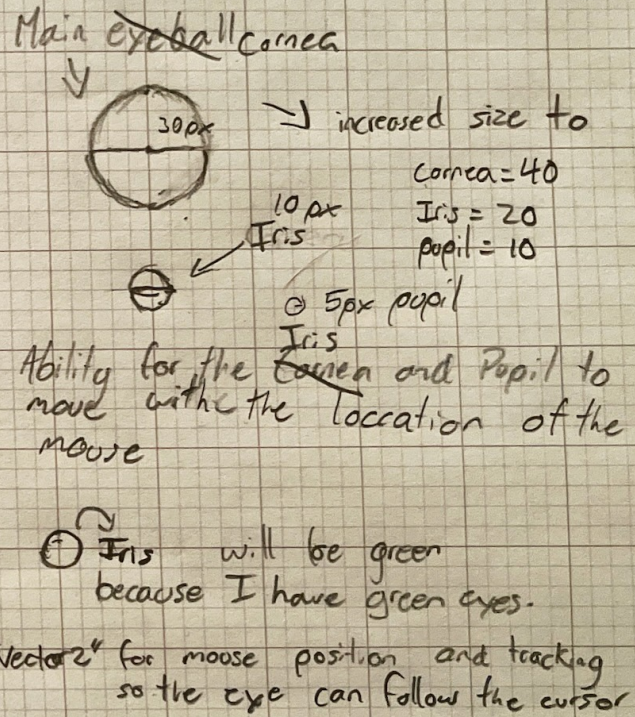 Main eyeball cornea
30px
increased size to
cornea = 40
Iris = 20
pupil = 10
10 px
Iris
5px pupil
Iris
Ability for the Cornea and Pupil to
move withe the loccation of the
mouse
Iris will be green
because I have green eyes.
Vector2" for moose position and tracking
so the eye can follow the cursor